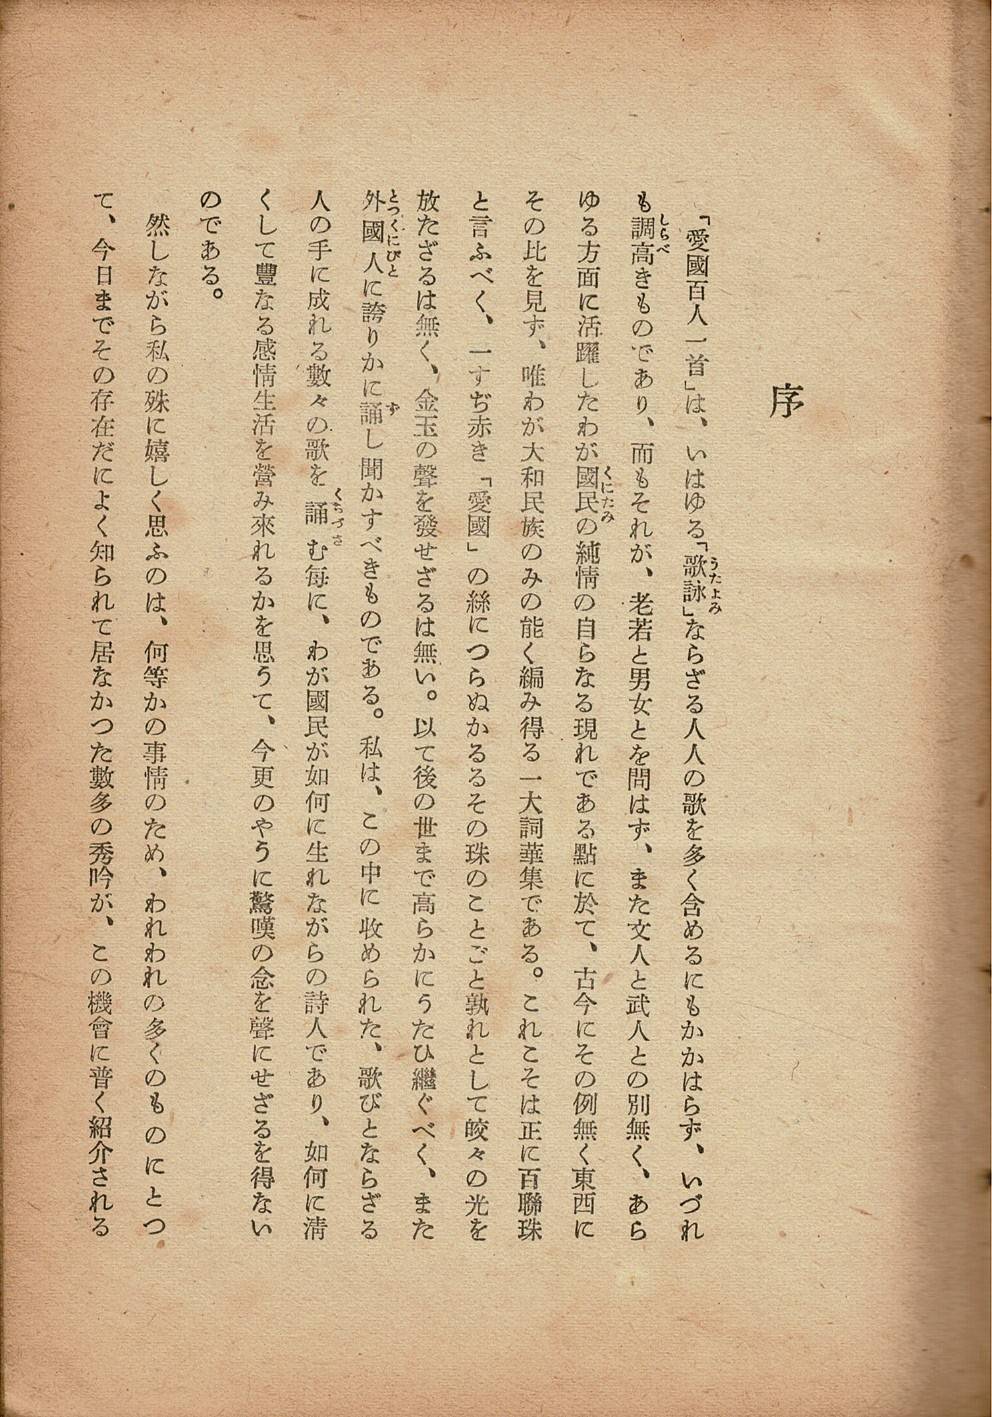 序
「愛國百人一首」は、いはゆる「歌詠」ならざる人人の歌を多く含めるにもかかはらず、いづれ
も調高きものであり、而もそれが、老若と男女とを問はず、また文人と武人との別無く、あら
ゆる方面に活躍したわが國民の純情の自らなる現れである點に於て、古今にその例無く東西に
その比を見ず、唯わが大和民族のみの能く編み得る一大詞華集である。これこそは正に百聯珠
と言ふべく、一すぢ赤き「愛國」の絲につらぬかるるその珠のことごと孰れとして皎々の光を
放たざるは無く、金玉の聲を發せざるは無い。以て後の世まで高らかにうたひ繼ぐべく、また
外國人に誇りかに誦し聞かすべきものである。私は、この中に收められた、歌びとならざる
人の手に成れる數々の歌を誦む每に、わが國民が如何に生れながらの詩人であり、如何に淸
くして豐なる感情生活を營み來れるかを思うて、今更のやうに驚嘆の念を聲にせざるを得ない
のである。
然しながら私の殊に嬉しく思ふのは、何等かの事情のため、われわれの多くのものにとつ
て、今日までその存在だによく知られて居なかつた數多の秀吟が、この機會に普く紹介される